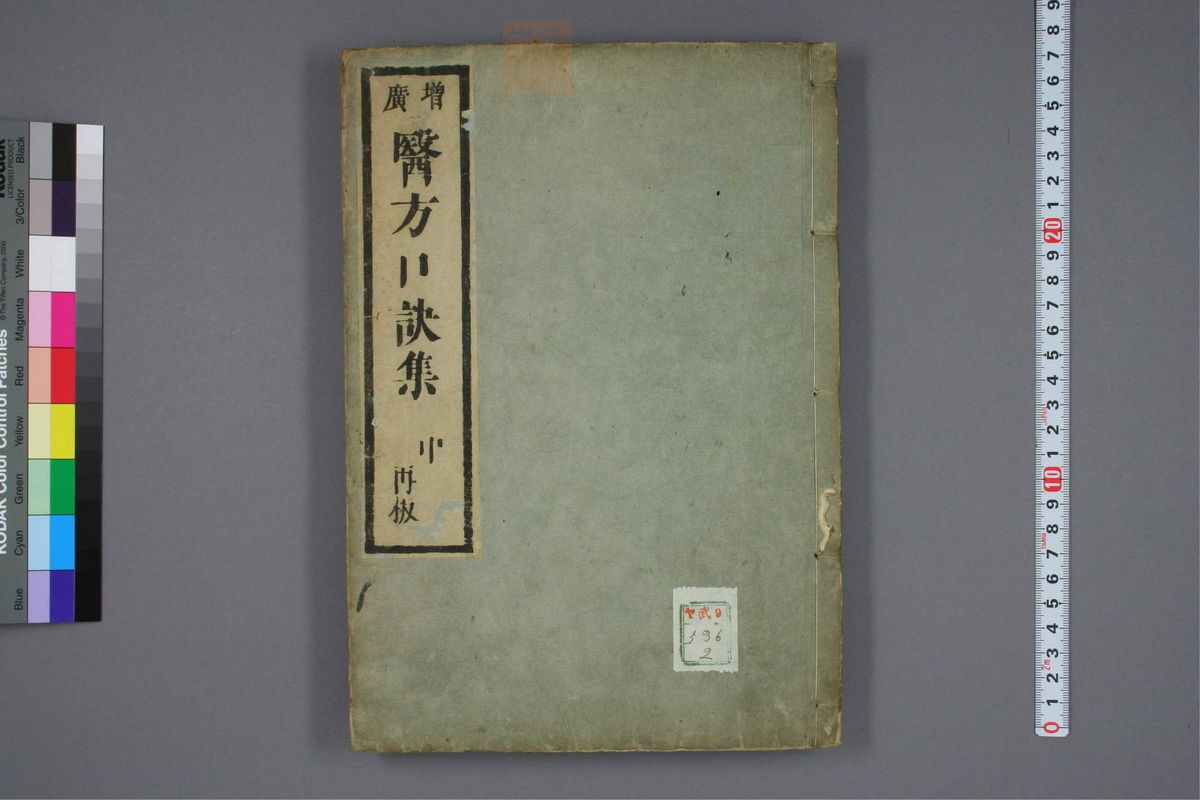 增廣
醫方口訣集
中
再板
ヤ武9
596
2
KODAK Color Control Patches
©The Tiffen Company, 2000
Kodak
LICENSED PRODUCT
Blue
Cyan
Green
Yellow
Red
Magenta
White
3/Color
Black
9
8
7
6
5
4
3
2
1
20
9
8
7
6
5
4
3
2
1
10
9
8
7
6
5
4
3
2m
2
1
0
JAPAN